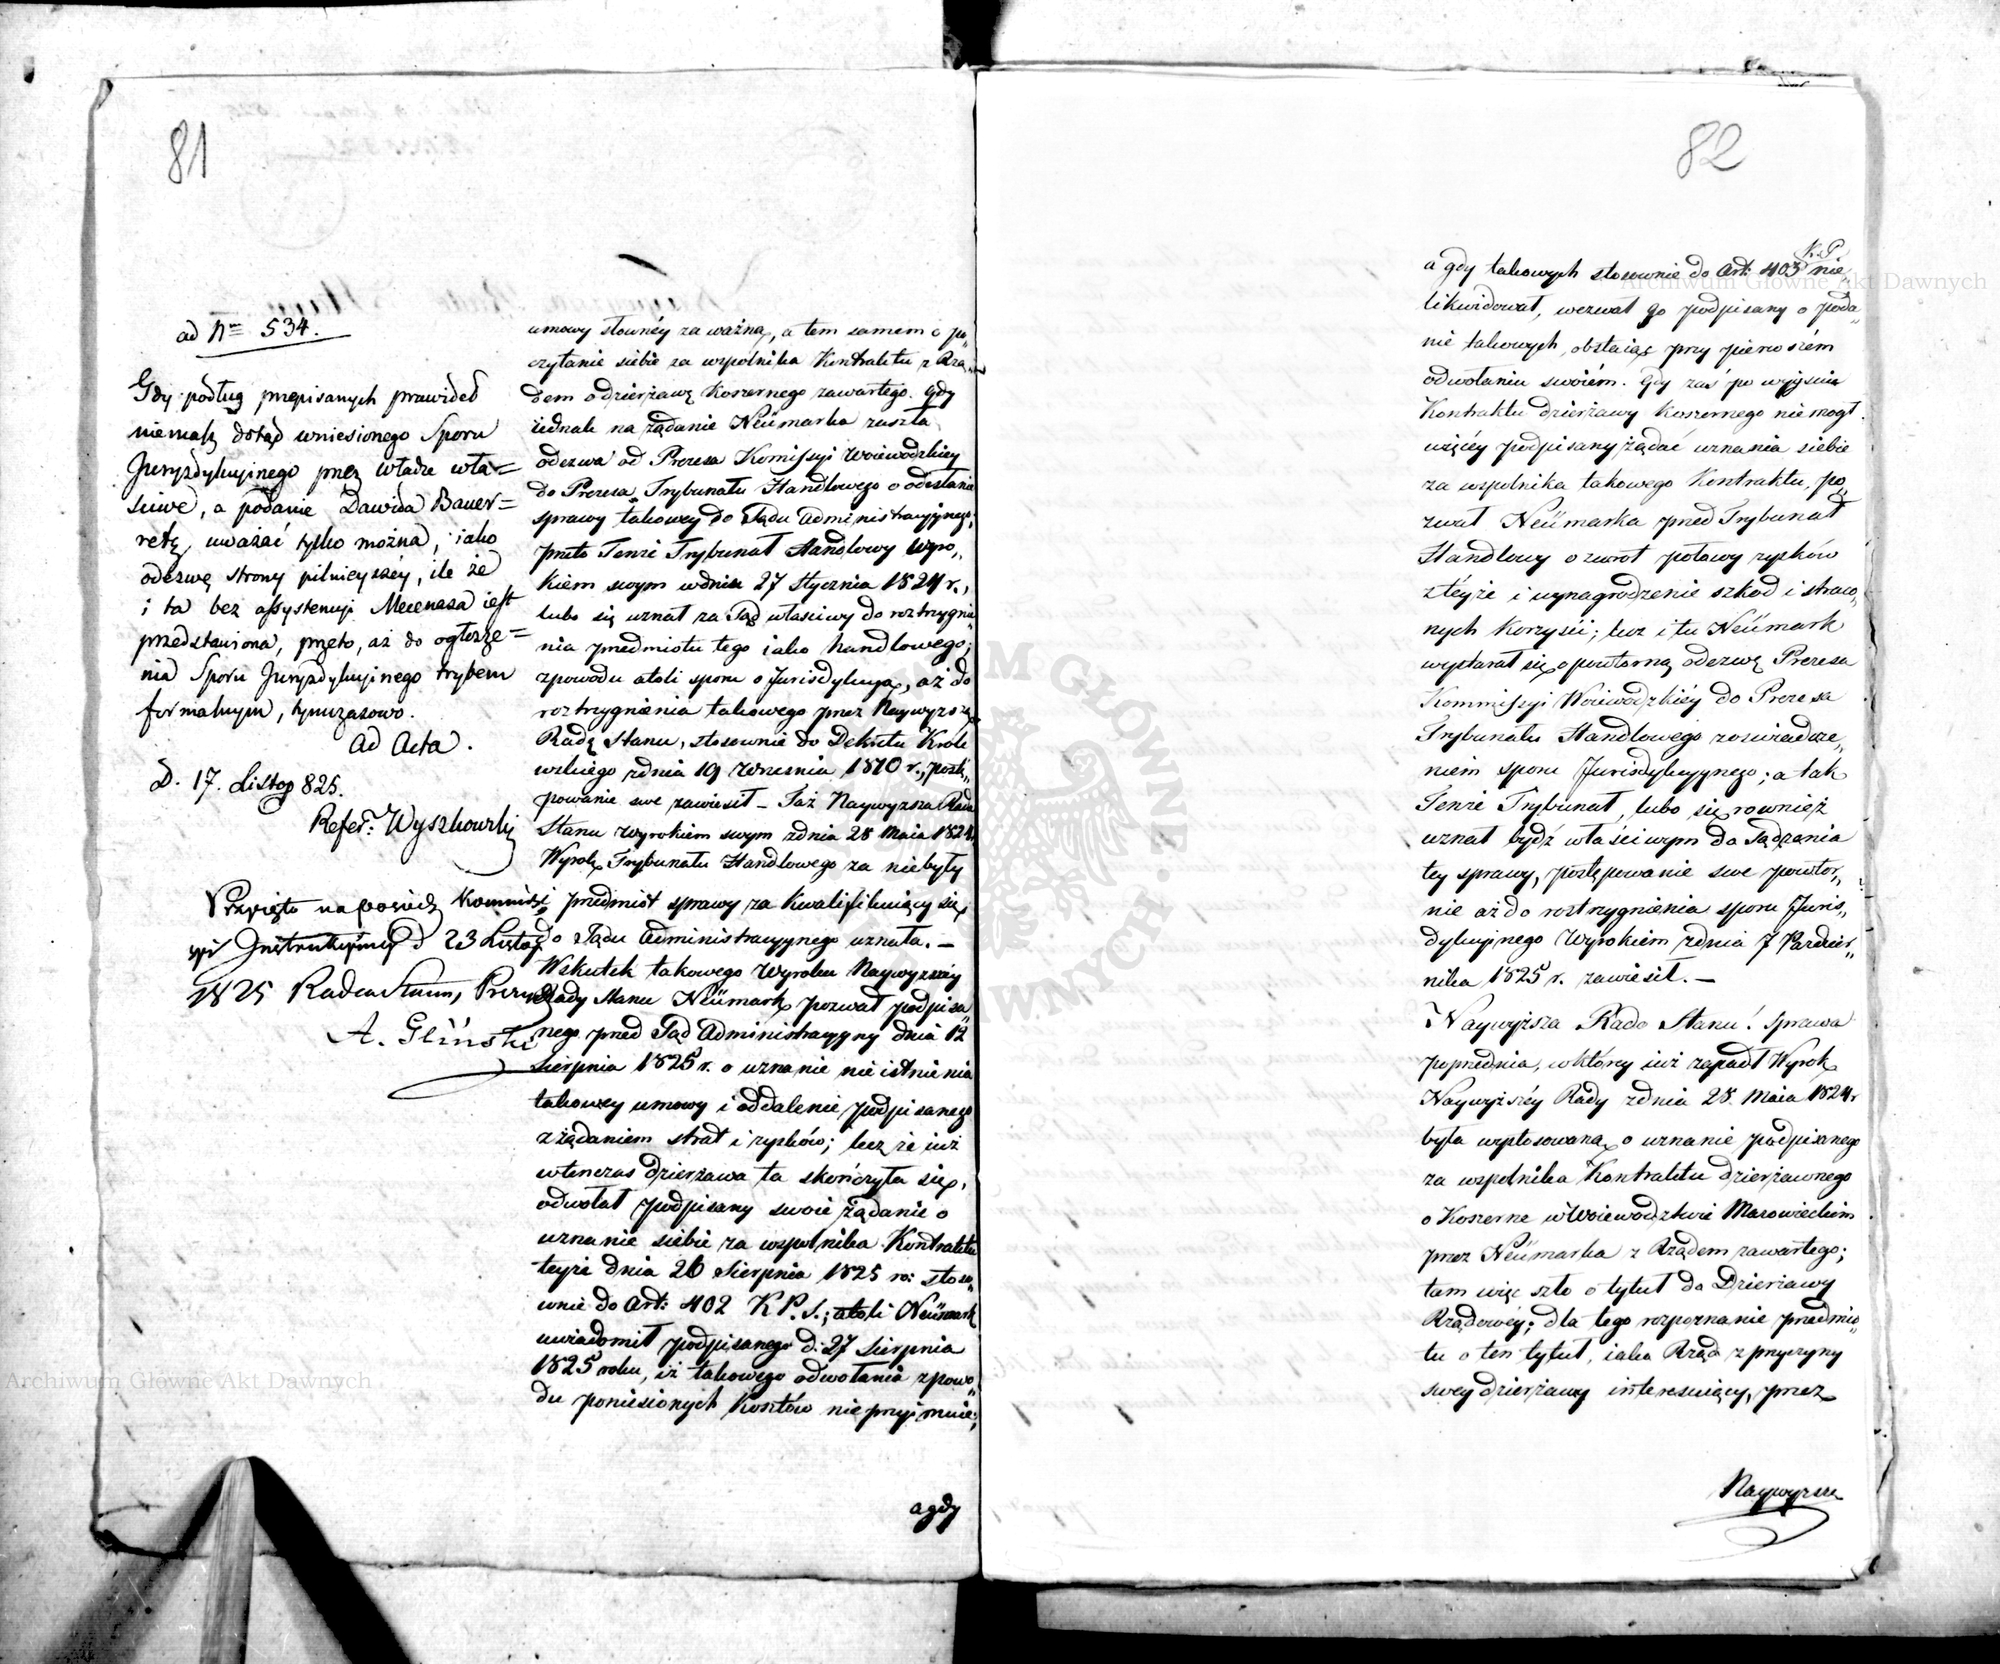 81
ad Nrm 534.
Gdy podług przepisanych prawideł
niemasz dotąd wniesionego Sporu
Juryzdykcyjnego przez władze wła=
sciwe, a podanie Dawida Bauer=
retz, uważać tylko można, jako
odezwę strony pilnieyszéy, ile że
i ta bez assystencji Mecenasa jest
przedstawiona, przeto, aż do ogłosze=
nia Sporu Juryzdykcyjnego trybem
formalnym, tymczasowo.
Ad Acta.
D. 17. Listop 825.
Refer: Wyszkowski
Przyięto na posiedz Kommiss
Instrukcyiney d 23 Listop
1825 Radca Stanu, Prezyd
A. Gliński
umowy słownéy za ważną, a tem samem o po„
czytanie siebie za wspolnika Kontraktu z Rzą„
dem o dzierżawę Koszernego zawartego. Gdy
iednak na żądanie Neümarka zaszła
odezwa od Prezesa Komissyi Woiewodzkiey
do Prezesa Trybunału Handlowego o odesłanie
sprawy takowey do Sądu Administracyjnego,
przeto Tenże Trybunał Handlowy Wyro„
kiem swym wdniu 27 Stycznia 1824 r.,
lubo się uznał za Sąd właściwy do roztrzygnie„
nia przedmiotu tego iako handlowego;
zpowodu atoli sporu o Jurisdykcyą, aż do
roztrzygnienia takowego przez Naywyższą
Radę Stanu, stosownie do Dekretu Króle
wskiego zdnia 19 Wrzesnia 1810 r., postę„
powanie swe zawiesił – Taż Naywyższa Rada
Stanu Wyrokiem swym zdnia 28 Maia 1824,
Wyrok Trybunału Handlowego za niebyły
i przedmiot sprawy za kwalifikuiący się
do Sądu Administracyjnego uznała. –
Wskutek takowego Wyroku Naywyższéy
Rady Stanu Neümark pozwał podpisa„
nego przed Sąd Administracyjny dnia 12
Sierpnia 1825 r. o uznanie nie istnienia
takowey umowy i oddalenie podpisanego
z żądaniem strat i zysków; lecz że iuż
wtenczas dzierżawa ta skończyła się,
odwołał podpisany swoie żądanie o
uznanie siebie za wspolnika Kontraktu
teyże dnia 26 Sierpnia 1825 ro: stoso„
wnie do Art: 402 K P. S.; atoli Neümark
uwiadomił podpisanego d. 27 Sierpnia
1825 roku, iż takowego odwołania zpowo„
du poniesionych Kosztów nie przyimuie;
agdy
82
K. P.
a gdy takowych stosownie do Art: 403 nie„
likwidował, wezwał go podpisany o poda„
nie takowych, obstaiąc przy pierwszém
odwołaniu swoiém. Gdy zaś po wyjściu
Kontraktu dzierżawy Koszernego niemogł
więcéy podpisany żądać uznania siebie
za wspolnika takowego Kontraktu, po„
zwał Neümarka przed Trybunał
Handlowy o zwrot połowy zysków
ztéyże i wynagrodzenie szkod i straco„
nych korzyści; lecz i tu Neümark
wystarał się o powtorną odezwę Prezesa
Kommissyi Woiewodzkiéy do Prezesa
Trybunału Handlowego zoświadcze„
niem sporu Jurisdykcyjnego; a tak
Tenże Trybunał, lubo się rownież
uznał bydź właściwym do Sądzenia
tey sprawy, postępowanie swe powtor„
nie aż do roztrzygnienia sporu Juris„
dykcyjnego Wyrokiem zdnia 7 Pazdzier„
nika 1825 r. zawiesił. –
Naywyższa Rado Stanu! Sprawa
poprzednia, wktórey iuż zapadł Wyrok
Naywyższéy Rady zdnia 28. Maia 1824 r
była wystosowaną o uznanie podpisanego
za wspolnika Kontraktu dzierżawnego
o Koszerne w Woiewodztwie Mazowieckim
przez Neümarka z Rządem zawartego;
tam więc szło o tytuł do Dzierżawy
Rządowéy; dla tego rozpoznanie przedmio„
tu o ten tytuł, iako Rząd z przyczyny
swey dzierżawy interesuiący, przez
Naywyższą